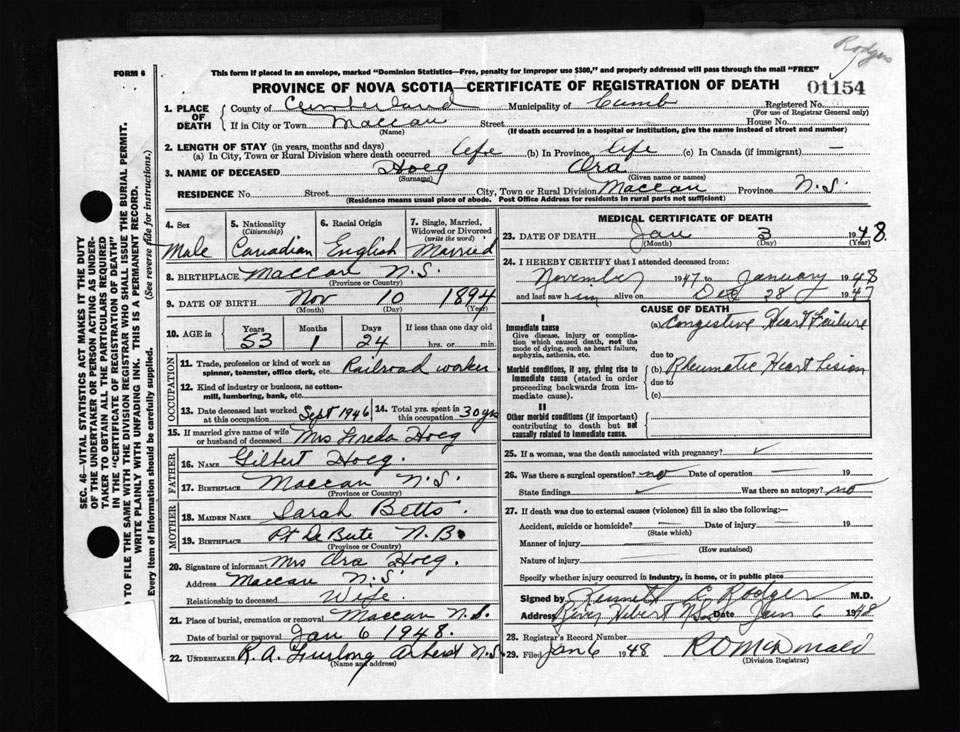 Rodgers
FORM 6
This form if placed in an envelope, marked "Dominion Statistics—Free, penalty for improper use $300," and properly addressed will pass through the mail "FREE"
PROVINCE OF NOVA SCOTIA—CERTIFICATE OF REGISTRATION OF DEATH
01154
1. PLACE OF DEATH
County of Cumberland Municipality of Cumb Registered No.
(For use of Registrar General only)
If in City or Town Maccan Street House No.
(Name) (If death occurred in a hospital or institution, give the name instead of street and number)
2. LENGTH OF STAY (in years, months and days)
(a) In City, Town or Rural Division where death occurred life (b) In Province life (c) In Canada (if immigrant) —
3. NAME OF DECEASED Hoeg Ora
(Surname) (Given name or names)
RESIDENCE No. Street City, Town or Rural Division Maccan Province N.S.
(Residence means usual place of abode. Post Office Address for residents in rural parts not sufficient)
4. Sex 5. Nationality (Citizenship) 6. Racial Origin 7. Single, Married, Widowed or Divorced (write the word)
Male Canadian English Married
8. BIRTHPLACE Maccan N.S.
(Province or Country)
9. DATE OF BIRTH Nov 10 1894
(Month) (Day) (Year)
10. AGE in Years Months Days If less than one day old
53 1 24 hrs. or min.
OCCUPATION
11. Trade, profession or kind of work as spinner, teamster, office clerk, etc. Railroad worker
12. Kind of industry or business, as cotton-mill, lumbering, bank, etc.
13. Date deceased last worked at this occupation Sept 1946 14. Total yrs. spent in this occupation 30 yrs
15. If married give name of wife or husband of deceased Mrs Freda Hoeg
FATHER
16. NAME Gilbert Hoeg.
17. BIRTHPLACE Maccan N.S.
(Province or Country)
MOTHER
18. MAIDEN NAME Sarah Betts.
19. BIRTHPLACE Pt De Bute N.B.
(Province or Country)
20. Signature of informant Mrs Ora Hoeg.
Address Maccan N.S.
Relationship to deceased Wife.
21. Place of burial, cremation or removal Maccan N.S.
Date of burial or removal Jan 6 1948.
22. UNDERTAKER R.A. Furlong Amherst N.S.
(Name and address)
MEDICAL CERTIFICATE OF DEATH
23. DATE OF DEATH Jan 3 1948.
(Month) (Day) (Year)
24. I HEREBY CERTIFY that I attended deceased from:
November 1947 to January 1948
and last saw him alive on Dec 28 1947
CAUSE OF DEATH
I
Immediate cause
Give disease, injury or complication which caused death, not the mode of dying, such as heart failure, asphyxia, asthenia, etc.
(a) Congestive Heart Failure
due to
Morbid conditions, if any, giving rise to immediate cause (stated in order proceeding backwards from immediate cause).
(b) Rheumatic Heart Lesion
due to
(c)
II
Other morbid conditions (if important) contributing to death but not causally related to immediate cause.
25. If a woman, was the death associated with pregnancy?
26. Was there a surgical operation? no Date of operation — 19
State findings Was there an autopsy? no
27. If death was due to external causes (violence) fill in also the following:—
Accident, suicide or homicide? — Date of injury 19
(State which)
Manner of injury
(How sustained)
Nature of injury
Specify whether injury occurred in industry, in home, or in public place
Signed by Kenneth E Rodger M.D.
Address River Hebert N.S. Date Jan 6 1948
28. Registrar's Record Number
29. Filed Jan 6 1948 R O McDonald
(Division Registrar)
SEC. 46—VITAL STATISTICS ACT MAKES IT THE DUTY
OF THE UNDERTAKER OR PERSON ACTING AS UNDER-
TAKER TO OBTAIN ALL THE PARTICULARS REQUIRED
IN THE "CERTIFICATE OF REGISTRATION OF DEATH"
TO FILE THE SAME WITH THE DIVISION REGISTRAR WHO SHALL ISSUE THE BURIAL PERMIT.
WRITE PLAINLY WITH UNFADING INK. THIS IS A PERMANENT RECORD.
Every item of information should be carefully supplied. (See reverse side for instructions.)